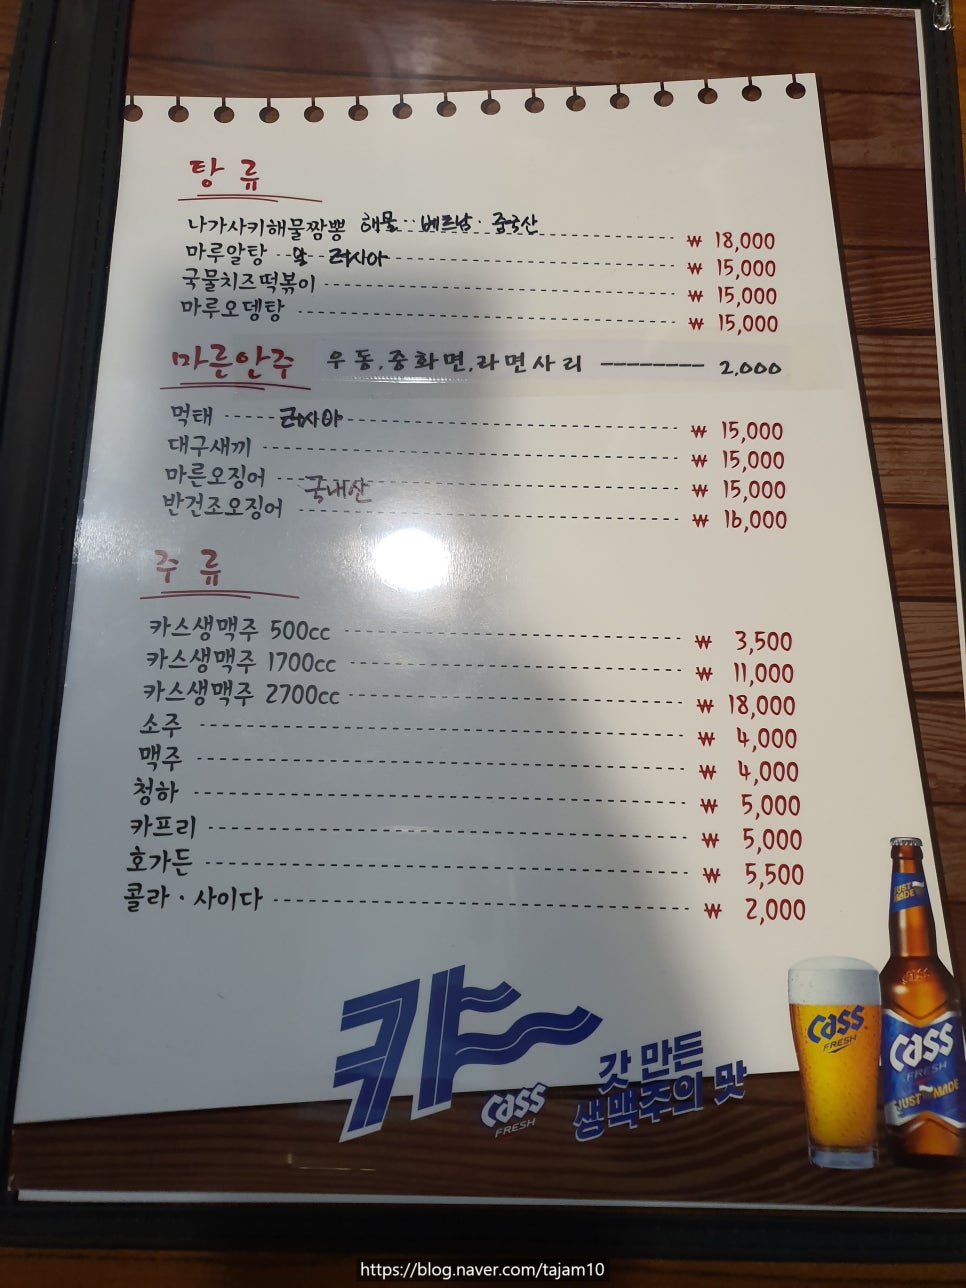 탕 류
나가사키해물짬뽕 해물·베트남·중국산 ₩ 18,000
마루알탕 알 러시아 ₩ 15,000
국물치즈떡볶이 ₩ 15,000
마루오뎅탕 ₩ 15,000
마른안주 우동,중화면,라면사리 2,000
먹태 러시아 ₩ 15,000
대구새끼 ₩ 15,000
마른오징어 국내산 ₩ 15,000
반건조오징어 ₩ 16,000
주 류
카스생맥주 500cc ₩ 3,500
카스생맥주 1700cc ₩ 11,000
카스생맥주 2700cc ₩ 18,000
소주 ₩ 4,000
맥주 ₩ 4,000
청하 ₩ 5,000
카프리 ₩ 5,000
호가든 ₩ 5,500
콜라·사이다 ₩ 2,000
캬~
갓 만든
생맥주의 맛
Cass
FRESH
Cass
FRESH
JUST MADE
Cass
FRESH
JUST MADE
https://blog.naver.com/tajam10